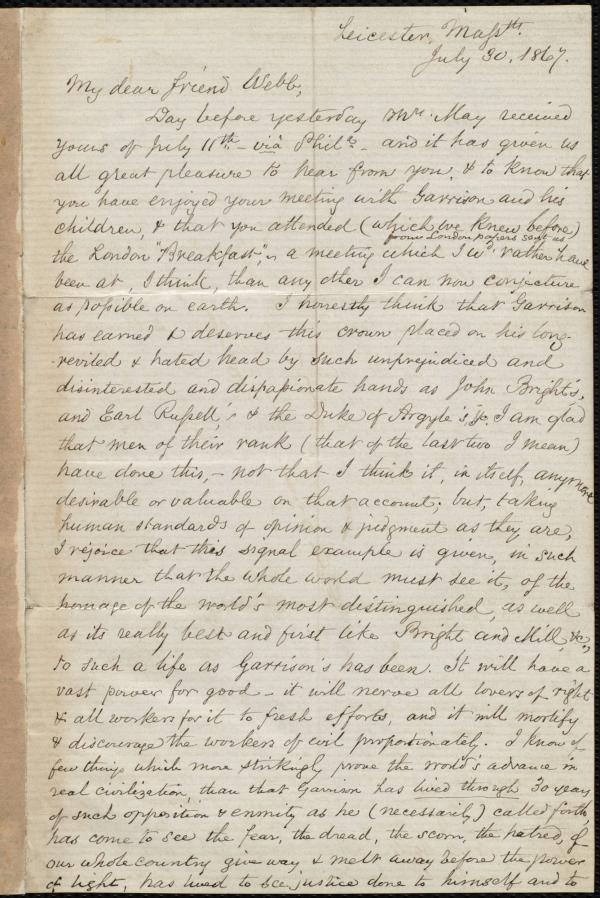 Leicester, Masstts.
July 30, 1867.
My dear friend Webb,
Day before yesterday Mr. May received
yours of July 11th - via Phila - and it has given us
all great pleasure to hear from you, & to know that
you have enjoyed your meeting with Garrison and his
children, & that you attended (which we knew before)
from London papers sent us
the London "Breakfast", a meeting which I wd rather have
been at, I think, than any other I can now conjecture
as possible on earth. I honestly think that Garrison
has earned & deserves this crown placed on his long-
-reviled & hated head by such unprejudiced and
disinterested and dispassionate hands as John Bright's,
and Earl Russell,'s & the Duke of Argyle's, &c. I am glad
that men of their rank (that of the last two I mean)
have done this, - not that I think it, in itself, any more
desirable or valuable on that account; but, taking
human standards of opinion & judgment as they are,
I rejoice that this signal example is given, in such
manner that the whole world must see it, of the
homage of the world's most distinguished, as well
as its really best and first like Bright and Mill, &c.,
to such a life as Garrison's has been. It will have a
vast power for good - it will nerve all lovers of right
& all workers for it to fresh efforts, and it will mortify
& discourage the workers of evil proportionately. I know of
few things which more strikingly prove the world's advance in
real civilization, than that Garrison has lived through 30 years
of such opposition & enmity as he (necessarily) called forth,
has come to see the fear, the dread, the scorn, the hatred, of
our whole country give way & melt away before the power
of light, has lived to see justice done to himself and to